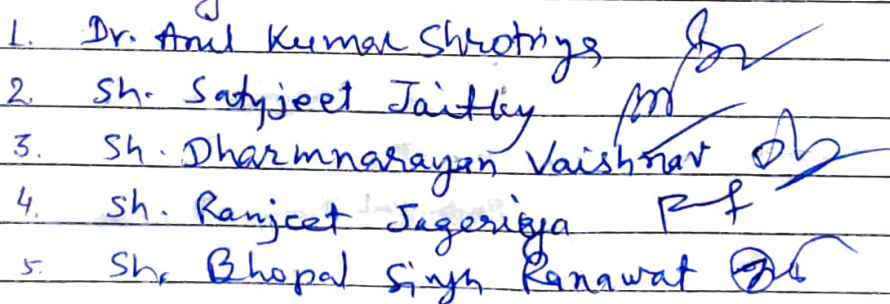 1. Dr. Anil Kumar Shrotriya
2. Sh. Satyjeet Jaitly
3. Sh. Dharmnarayan Vaishnav
4. Sh. Ranjeet Jageriya
5. Sh. Bhopal Singh Ranawat